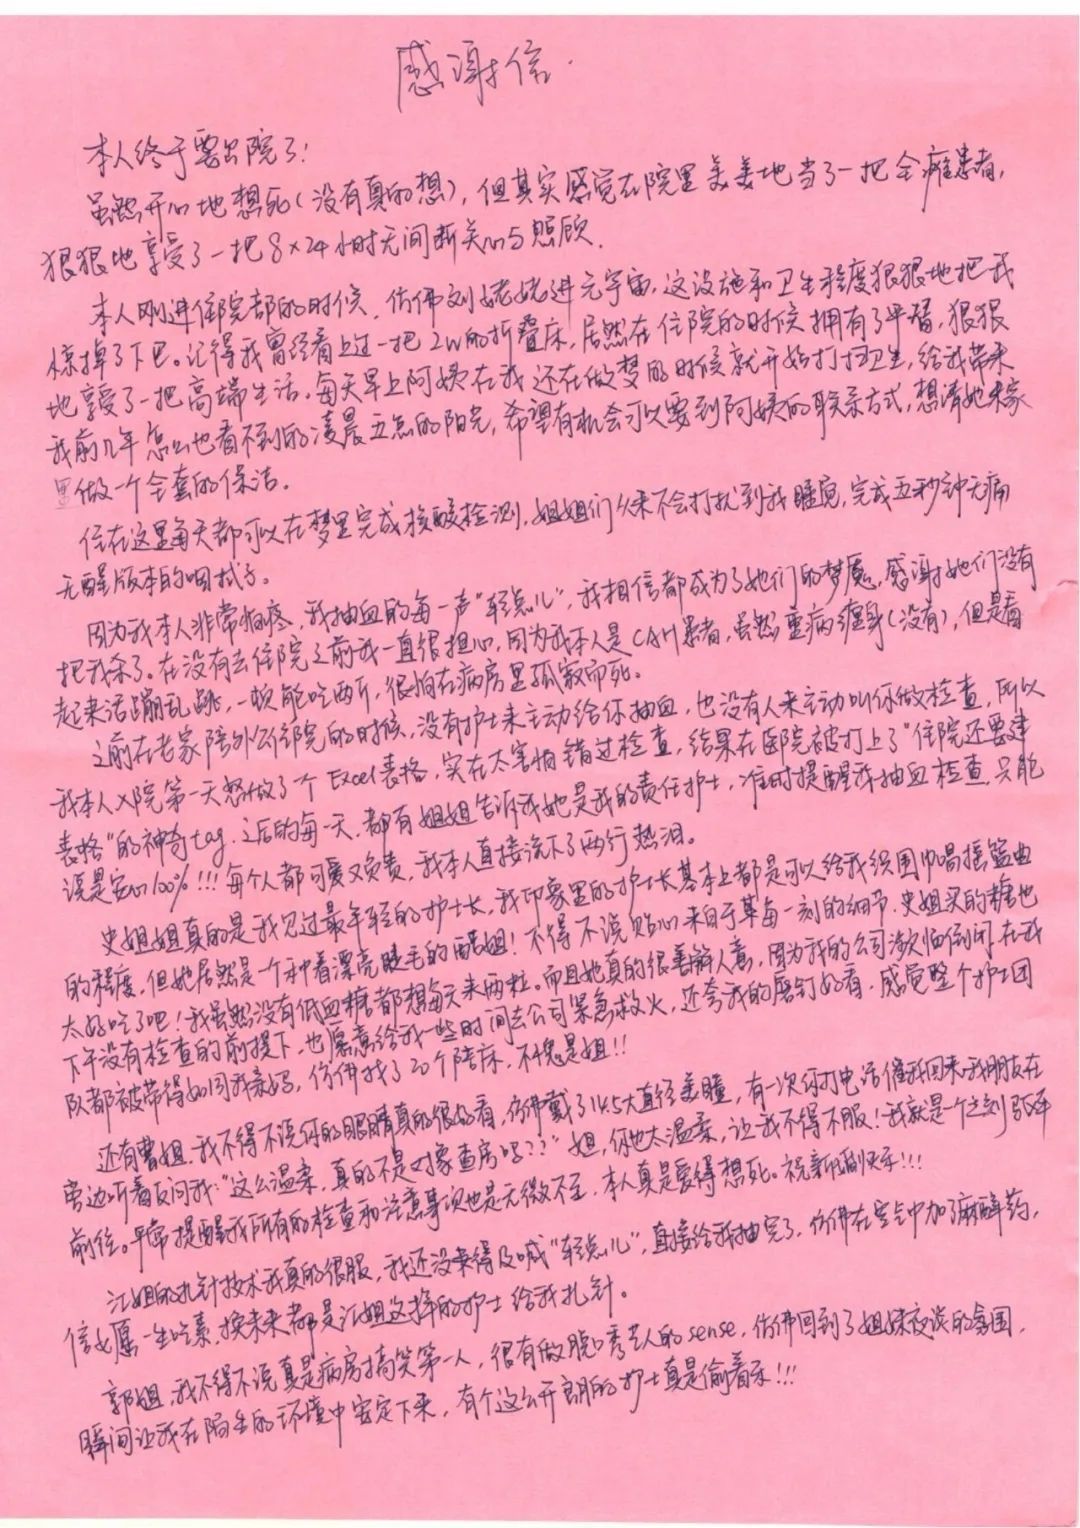 感谢信.
本人终于要出院了!
虽然开心地想死(没有真的想),但其实感觉在院里美美地当了一把全瘫患者,
狠狠地享受了一把8×24小时无间断关心与照顾.
本人刚进住院部的时候,仿佛刘姥姥进元宇宙,这设施和卫生程度狠狠地把我
惊掉了下巴。记得我曾经看上过一把2W的折叠床,居然在住院的时候拥有了平替,狠狠
地享受了一把高端生活。每天早上阿姨在我还在做梦的时候就开始打扫卫生,给我带来
我前几年怎么也看不到的凌晨五点的阳光,希望有机会可以要到阿姨的联系方式,想请她来家
里做一个全套的保洁。
住在这里每天都可以在梦里完成核酸检测,姐姐们从来不会打扰到我睡觉,完成五秒钟无痛
无醒版本的咽拭子。
因为我本人非常怕疼,我抽血的每一声“轻点儿”,我相信都成为了她们的梦魇,感谢她们没有
把我杀了。在没有去住院之前我一直很担心,因为我本人是CAH患者,虽然重病缠身(没有),但是看
起来活蹦乱跳,一顿能吃两斤,很怕在病房里孤寂而死。
之前在老家陪外公住院的时候,没有护士来主动给你抽血,也没有人来主动叫你做检查,所以
我本人入院第一天怒做了一个Excel表格,实在太害怕错过检查,结果在医院被打上了“住院还要建
表格”的神奇tag.之后的每一天,都有姐姐告诉我她是我的责任护士,准时提醒我抽血检查,只能
说是安心100%!!!每个人都可爱又负责,我本人直接流下了两行热泪。
史姐姐真的是我见过最年轻的护士长,我印象里的护士长基本上都是可以给我织围巾唱摇篮曲
的程度,但她居然是一个种着漂亮睫毛的酷姐!不得不说贴心来自于每一刻的细节.史姐买的糖也
太好吃了吧!我虽然没有低血糖都想每天来两粒。而且她真的很善解人意,因为我的公司濒临倒闭,在我
下午没有检查的前提下,也愿意给我一些时间去公司紧急救火,还夸我的唇钉好看,感觉整个护士团
队都被带得如同我亲妈,仿佛找了20个陪床,不愧是姐!!
还有曹姐,我不得不说你的眼睛真的很好看,仿佛戴了14.5大直径美瞳,有一次你打电话催我回来,我朋友在
旁边听着反问我:“这么温柔,真的不是对象查房吗??”姐,你也太温柔,让我不得不服!我就是一个立刻驱车
前往。平常提醒我所有的检查和注意事项也是无微不至,本人真是爱得想死。祝新婚快乐!!!
江姐的扎针技术我真的很服,我还没来得及喊“轻点儿”,直接给我抽完了,仿佛在空气中加了麻醉药,
信女愿一生吃素,换未来都是江姐这样的护士给我扎针。
郭姐,我不得不说真是病房搞笑第一人,很有做脱口秀艺人的sense,仿佛回到了姐妹夜谈的氛围,
瞬间让我在陌生的环境中安定下来,有个这么开朗的护士真是偷着乐!!!